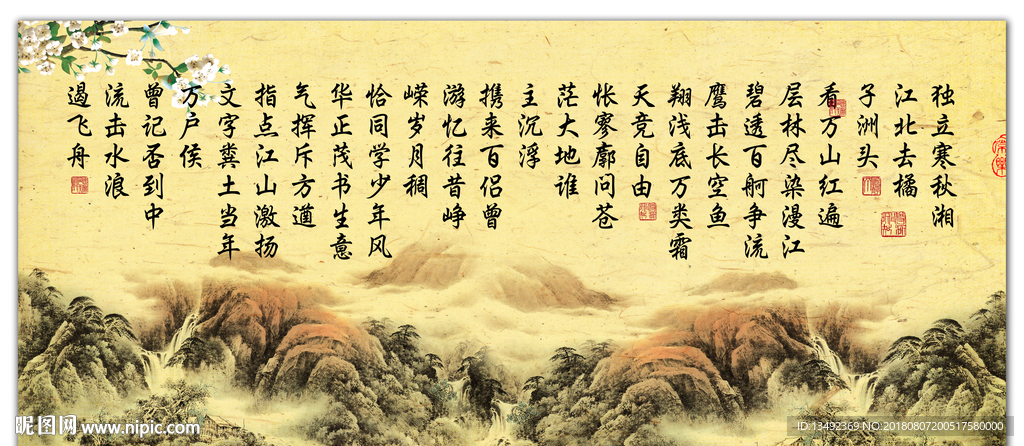 独立寒秋湘
江北去橘
子洲头
看万山红遍
层林尽染漫江
碧透百舸争流
鹰击长空鱼
翔浅底万类霜
天竞自由
怅寥廓问苍
茫大地谁
主沉浮
携来百侣曾
游忆往昔峥
嵘岁月稠
恰同学少年风
华正茂书生意
气挥斥方遒
指点江山激扬
文字粪土当年
万户侯
曾记否到中
流击水浪
遏飞舟
昵图网 www.nipic.com
ID:13492369 NO:20180807200517580000